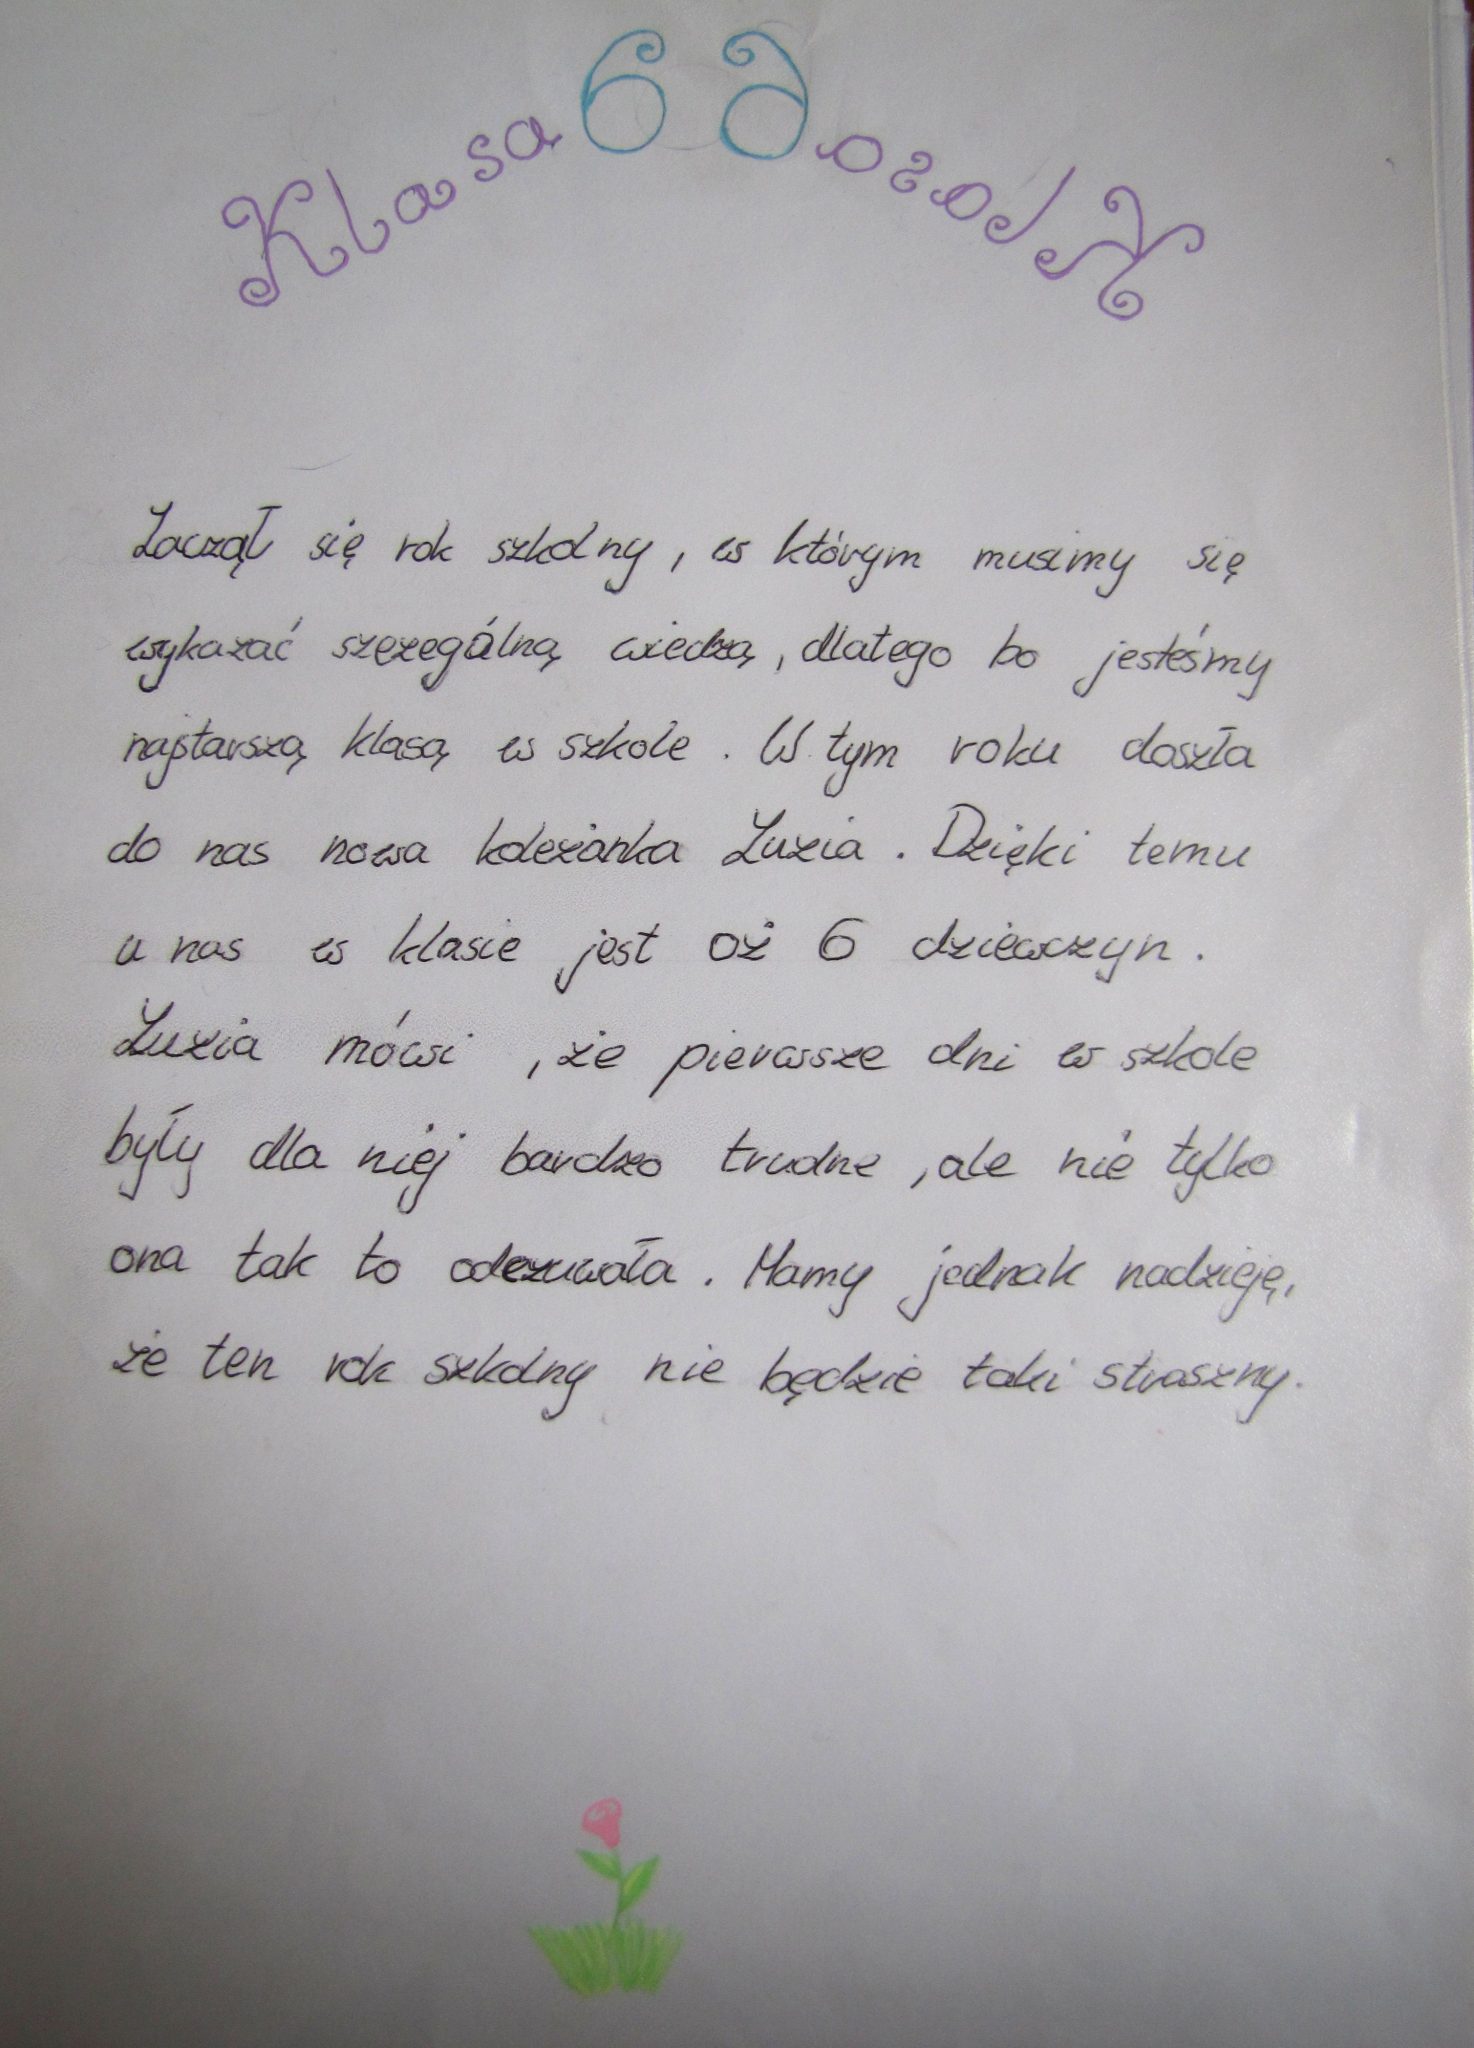 Klasa 6
Zaczął się rok szkolny, w którym musimy się
wykazać szczególną wiedzą, dlatego bo jesteśmy
najstarszą klasą w szkole. W tym roku doszła
do nas nowa koleżanka Luzia. Dzięki temu
u nas w klasie jest aż 6 dziewczyn.
Luzia mówi, że pierwsze dni w szkole
były dla niej bardzo trudne, ale nie tylko
ona tak to odczuwała. Mamy jednak nadzieję,
że ten rok szkolny nie będzie taki straszny.